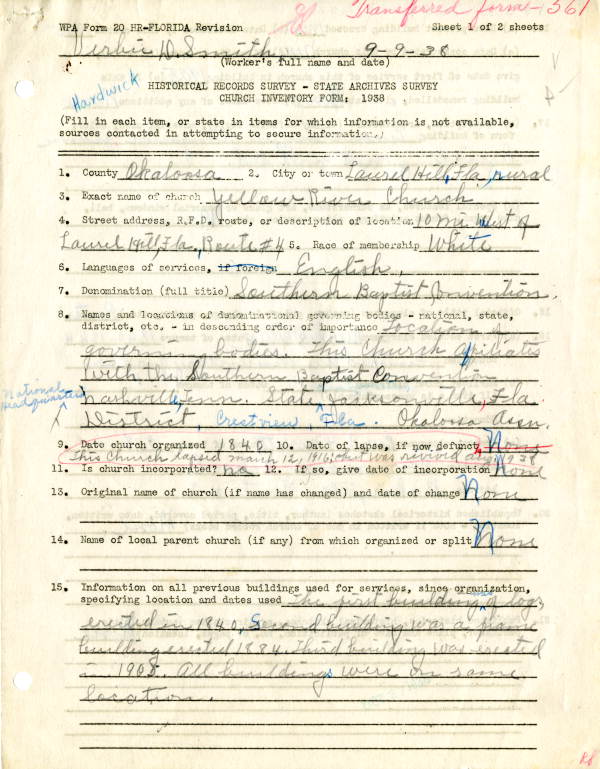 Transferred form-561
WPA Form 20 HR-FLORIDA Revision Sheet 1 of 2 sheets
Verbie D. Smith 9-9-38
(Worker's full name and date)
Hardwick
HISTORICAL RECORDS SURVEY - STATE ARCHIVES SURVEY
CHURCH INVENTORY FORM: 1938
(Fill in each item, or state in items for which information is not available,
sources contacted in attempting to secure information.)
1. County Okaloosa 2. City or town Laurel Hill, Fla, rural
3. Exact name of church Yellow River Church
4. Street address, R.F.D. route, or description of location 10 mi. West of
Laurel Hill, Fla., Route #4 5. Race of membership White
6. Languages of services, if foreign English.
7. Denomination (full title) Southern Baptist Convention.
8. Names and locations of denominational governing bodies - national, state,
district, etc. - in descending order of importance Location of
governing bodies. This Church affiliates
with the Southern Baptist Convention
National
Headquarters
Nashville, Tenn. State, Jacksonville, Fla.
District, Crestview, Fla. Okaloosa Assn.
9. Date church organized 1840 10. Date of lapse, if now defunct None
This Church lapsed march 12, 1916, but was revived 1938
11. Is church incorporated? no 12. If so, give date of incorporation None
13. Original name of church (if name has changed) and date of change None
14. Name of local parent church (if any) from which organized or split None
15. Information on all previous buildings used for services, since organization,
specifying location and dates used The first building of logs,
erected in 1840, Second building was a frame
building erected 1884. Third building was erected
in 1908. All buildings were on same
location.